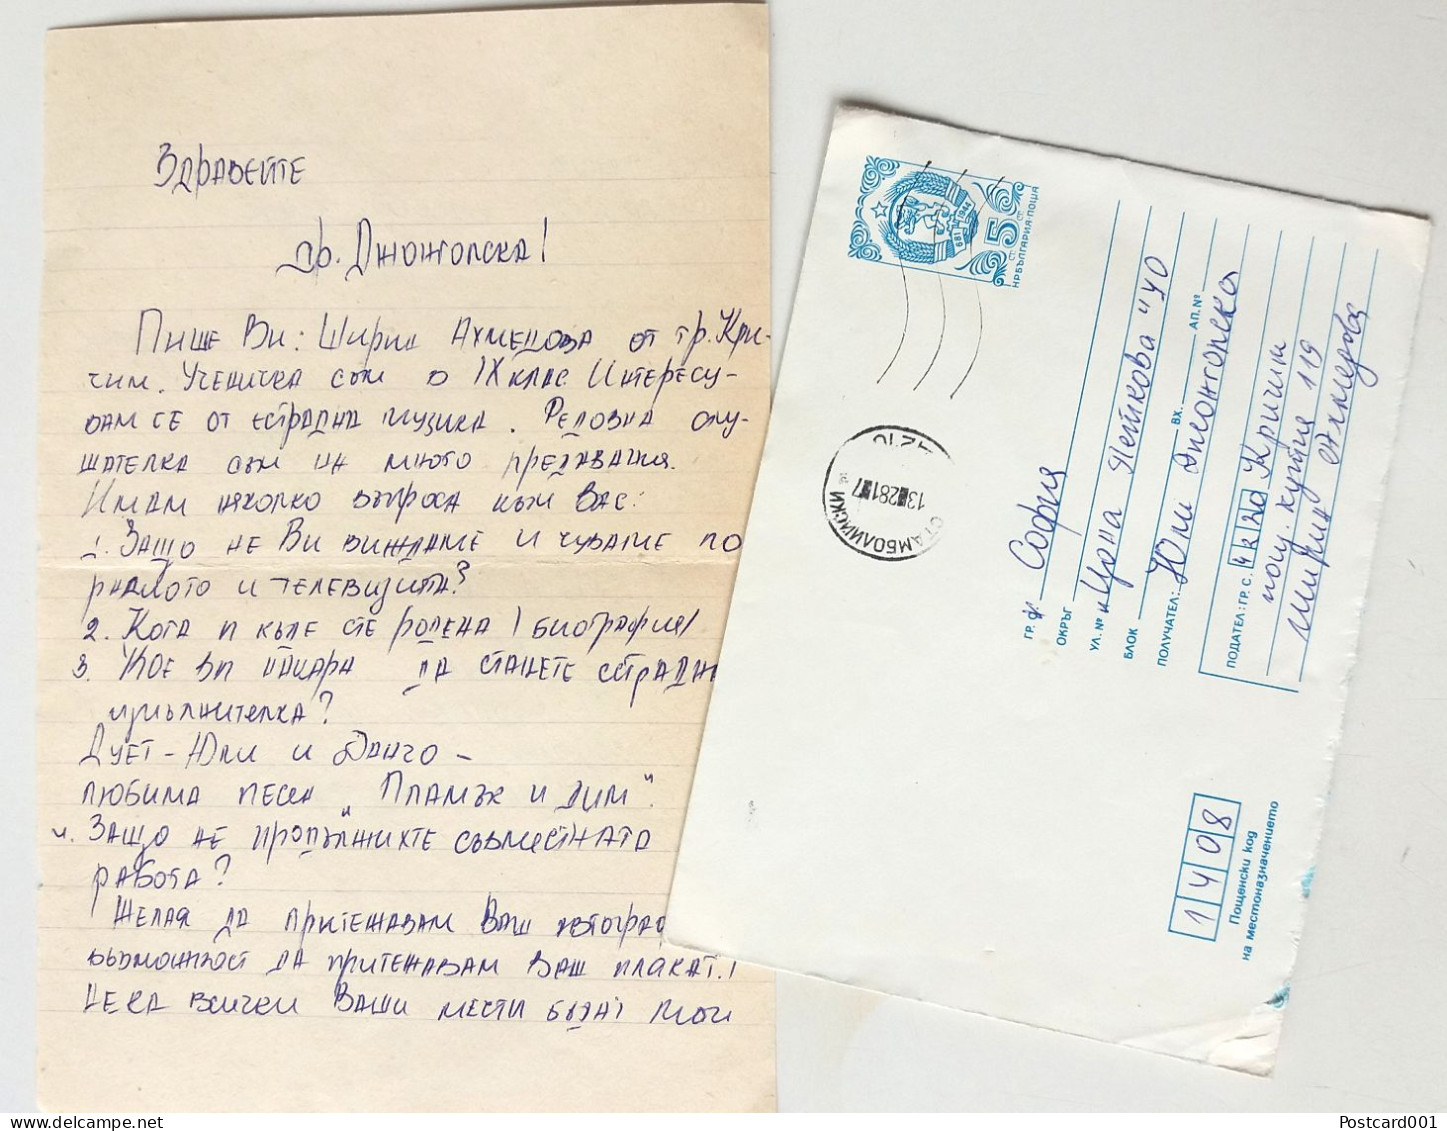 Здравейте
др. Джонгорска!
Пише Ви: Ширин Ахмедова от гр. Кри-
чим. Ученичка съм в IX клас. Интересу-
вам се от естрадна музика. Редовна слу-
шателка съм на много предавания.
Имам няколко въпроса към Вас:
1. Защо не Ви виждаме и чуваме по
радиото и телевизията?
2. Кога и къде сте родена /биография/
3. Кое Ви накара да станете естрадн
изпълнителка?
Дует - Юли и Данчо -
любима песен „Пламък и дим".
4. Защо не продължихте съвместната
работа?
Желая да притежавам Ваш автограф
възможност да притежавам Ваш плакат.!
Нека всички Ваши мечти бъдат мои
НРБЪЛГАРИЯ·ПОЩА
5 СТ.
681 1944
СТАМБОЛИЙСКИ
13 281 7
ГР. София
ОКРЪГ
УЛ. № „Цона Петкова" 40
БЛОК ВХ. АП.№
ПОЛУЧАТЕЛ: Юли Джонгорска
ПОДАТЕЛ: ГР. С. 4220 Кричим
пощ. кутия 119
Ширин Ахмедова
1408
Пощенски код
на местоназначението
Postcard001